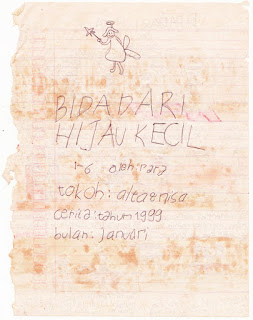 BIDADARI
HIJAU KECIL
1-6 oleh: rara
tokoh: altaenisa
cerita: tahun 1999
bulan: Januari